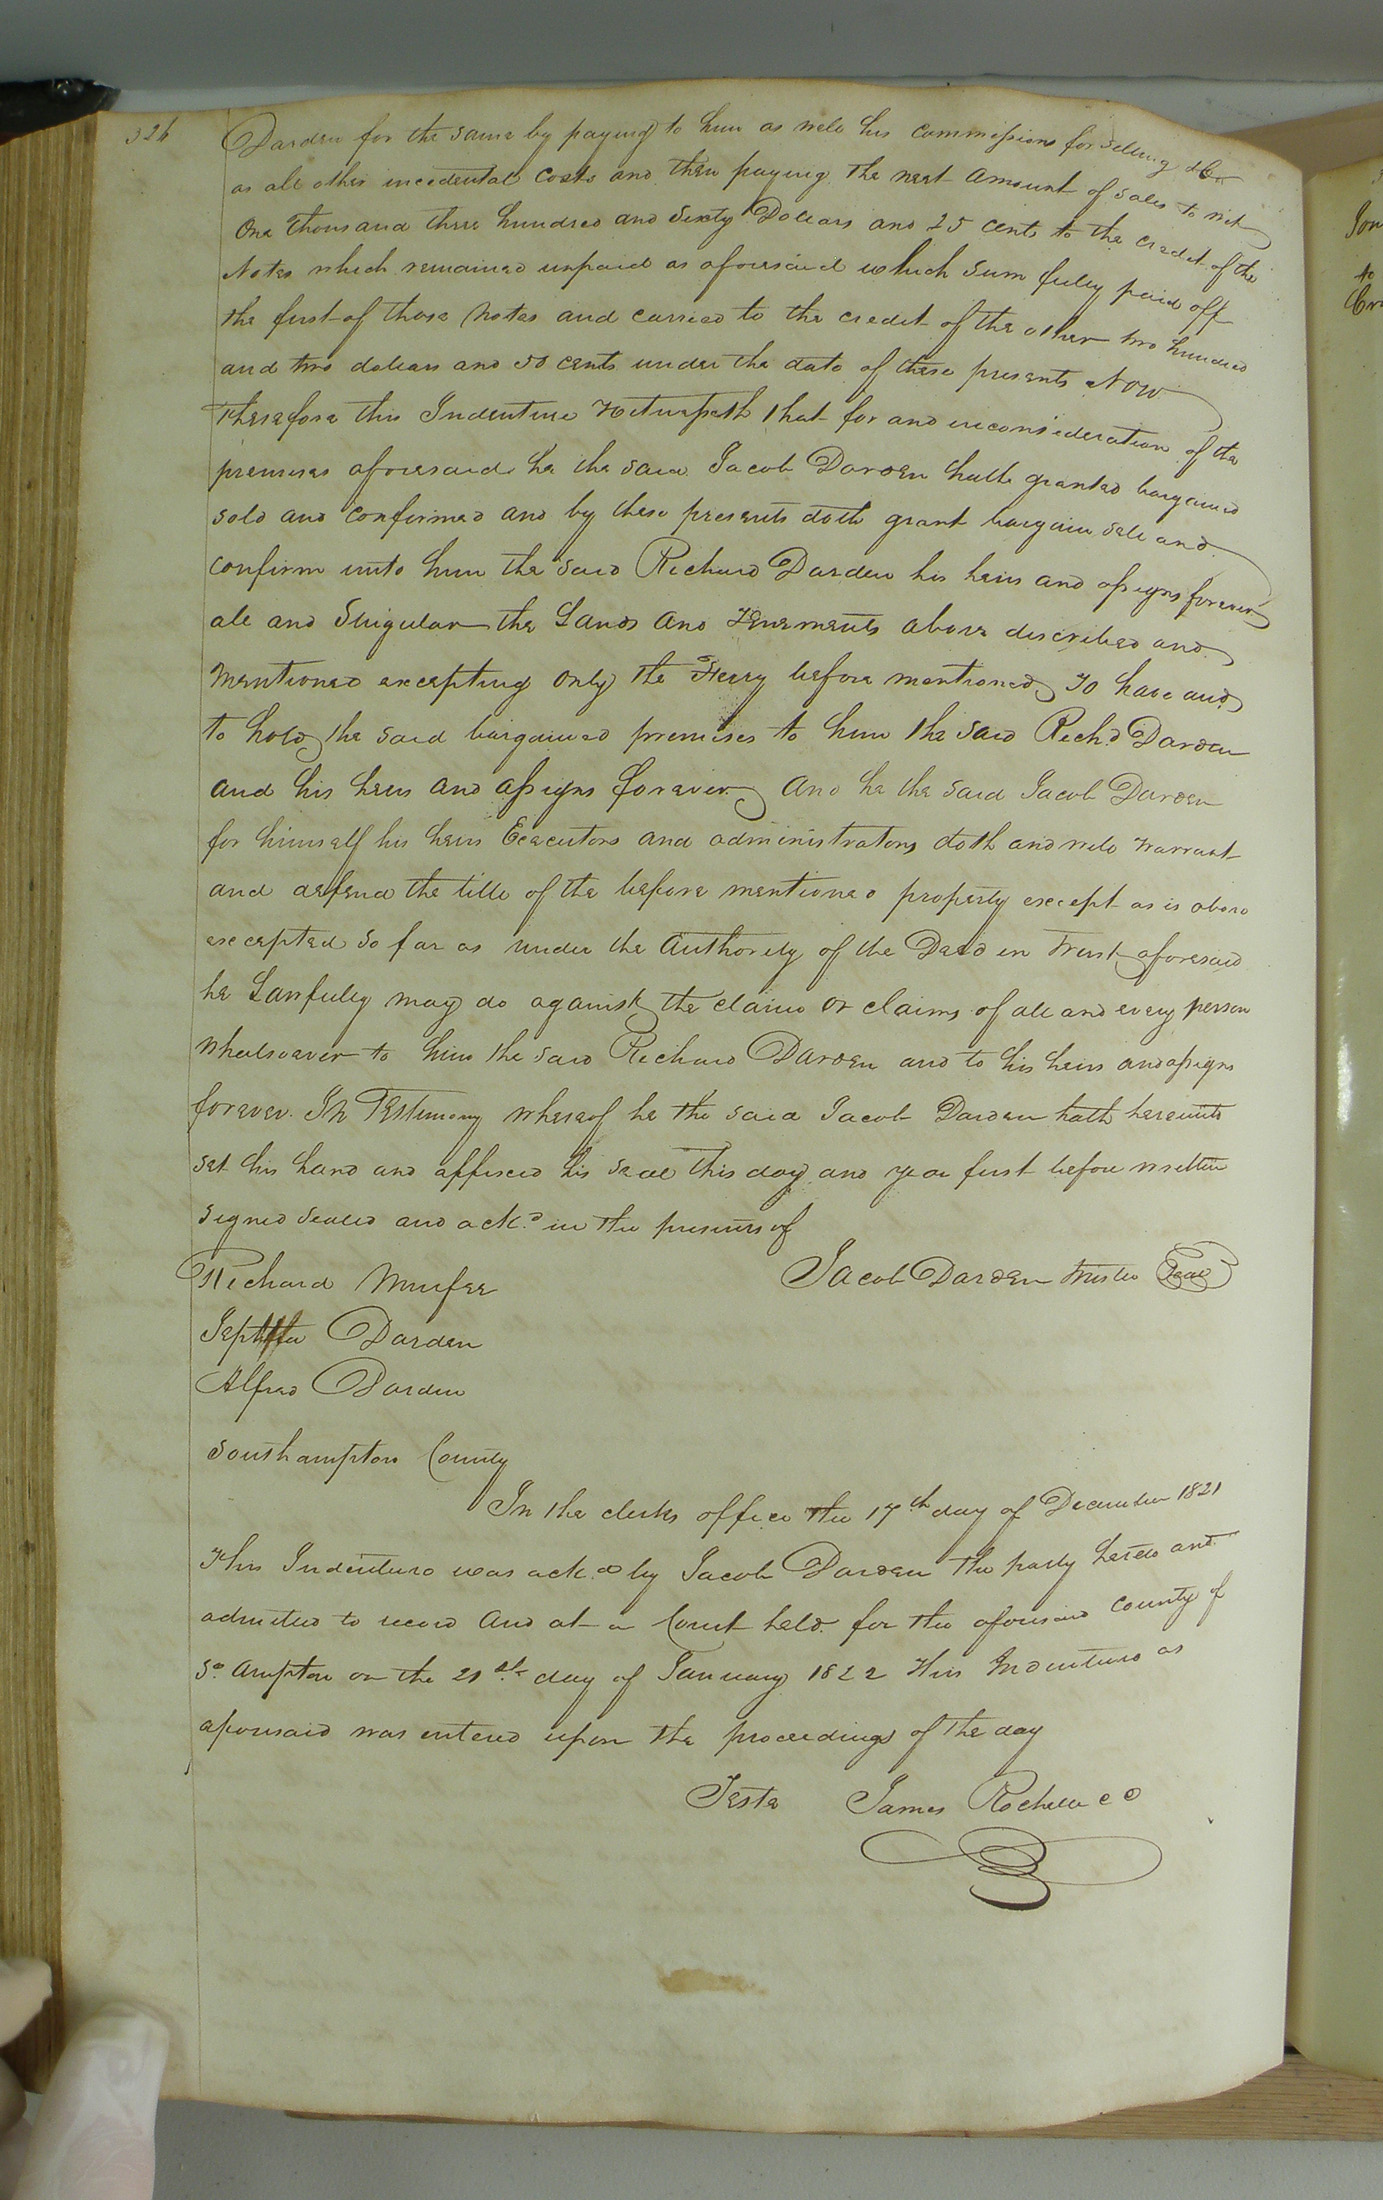 326
Darden for the same by paying to him as well his commissions for selling &c
as all other incedental Costs and then paying the neat amount of sales to wit
One thousand three hundred and Sixty Dollars and 25 cents to the credit of the
Notes which remained unpaid as aforesaid which sum fully paid off
the first of those Notes and carried to the credit of the other two hundred
and two dollars and 50 cents under the date of these presents Now
Therefore this Indenture Witnesseth that for and inconsideration of the
premises aforesaid he the said Jacob Darden hath granted bargained
sold and confirmed and by these presents doth grant bargain sell and
confirm unto him the said Richard Darden his heirs and assigns forever
all and Singular the Lands and Tenements above described and
mentioned excepting only the Ferry before mentioned To have and
to hold the said bargained premises to him the said Richd Darden
and his heirs and assigns forever And he the said Jacob Darden
for himself his heirs Executors and administrators doth and will warrant
and defend the title of the before mentioned property except as is above
excepted so far as under the Authority of the Deed in Trust aforesaid
he Lawfully may do against the claim or claims of all and every person
whatsoever to him the said Richard Darden and to his heirs and assigns
forever. In Testimony whereof he the said Jacob Darden hath hereunto
set his hand and affixed his seal this day and year first before written
Signed Sealed and ackd in the presents of
Richard Jacob Darden Trustee Seal
Jeptha Darden
Alfred Darden
Southampton County
In the clerks office the 17th day of December 1821
This Indenture was ackd by Jacob Darden the party hereto and
admitted to record And at a Court held for the aforesaid County of
So Ampton on the 21st day of January 1822 This Indenture as
aforesaid was entered upon the proceedings of the day
Teste James Rochelle CC
to